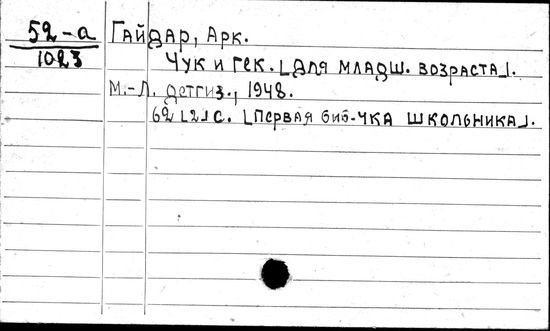 52-а Гайдар, Арк.
1023
Чук и Гек. [Для младш. возраста].
М.-Л. Детгиз., 1948.
62 [2] с. [Первая биб-чка школьника].